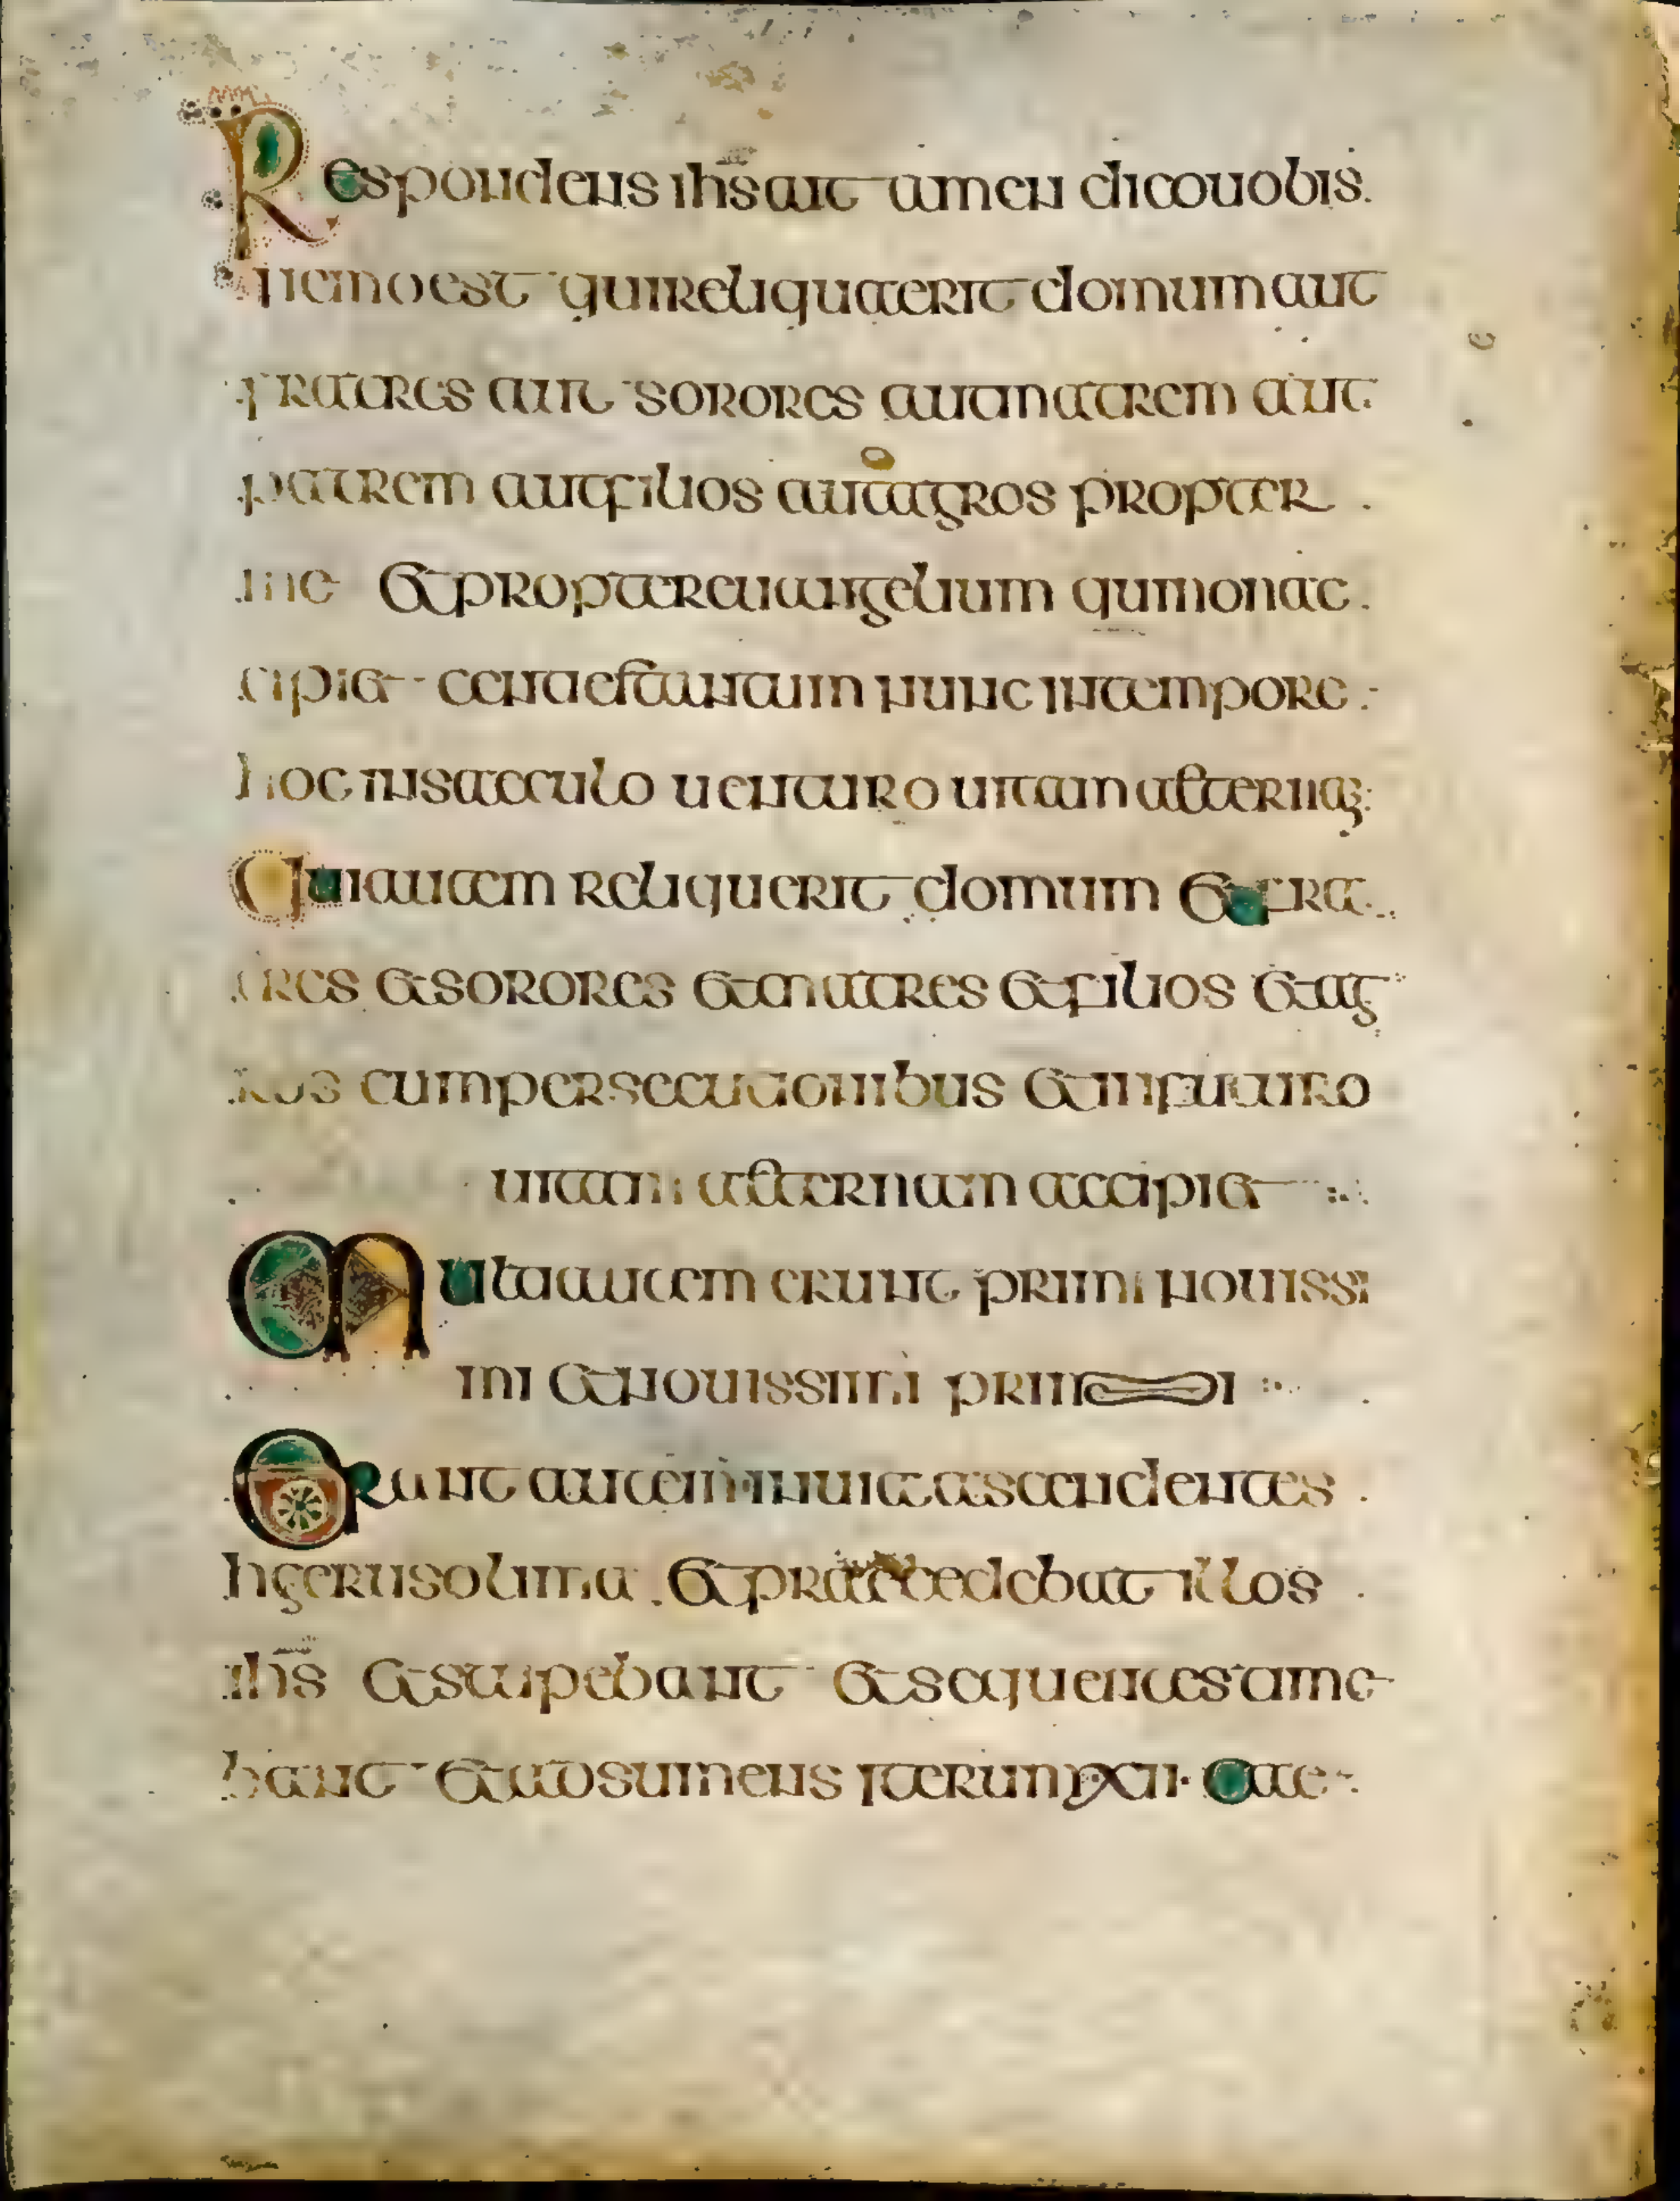 Respondens ihs ait amen dico uobis
nemo est qui reliquaerit domum aut
fratres aut sorores aut matrem aut
patrem aut filios aut agros propter
me et propter euangelium qui non ac
cipiet centies tantum nunc in tempore
hoc in saeculo uenturo uitam aeterna
Qui autem reliquerit domum et fra
tres et sorores et matres et filios et ag
ros cum persecutionibus et in futuro
uitam aeternam accipiet
Multi autem erunt primi nouissi
mi et nouissimi primi
Erant autem in uia ascendentes
hierusolima et praecedebat illos
ihs et stupebant et sequentes time
bant et adsumens iterum xii coe